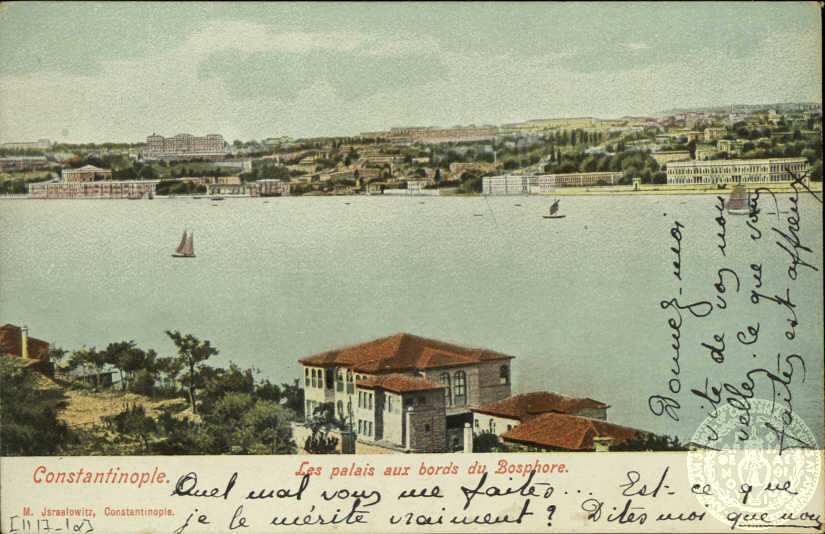 Donnez-moi
vite de vos nou
velles. Ce que vous
faites est affreux
Constantinople.
Les palais aux bords du Bosphore.
M. Jsraelowitz, Constantinople.
Quel mal vous me faites... Est-ce que
je le mérite vraiment? Dites moi que non